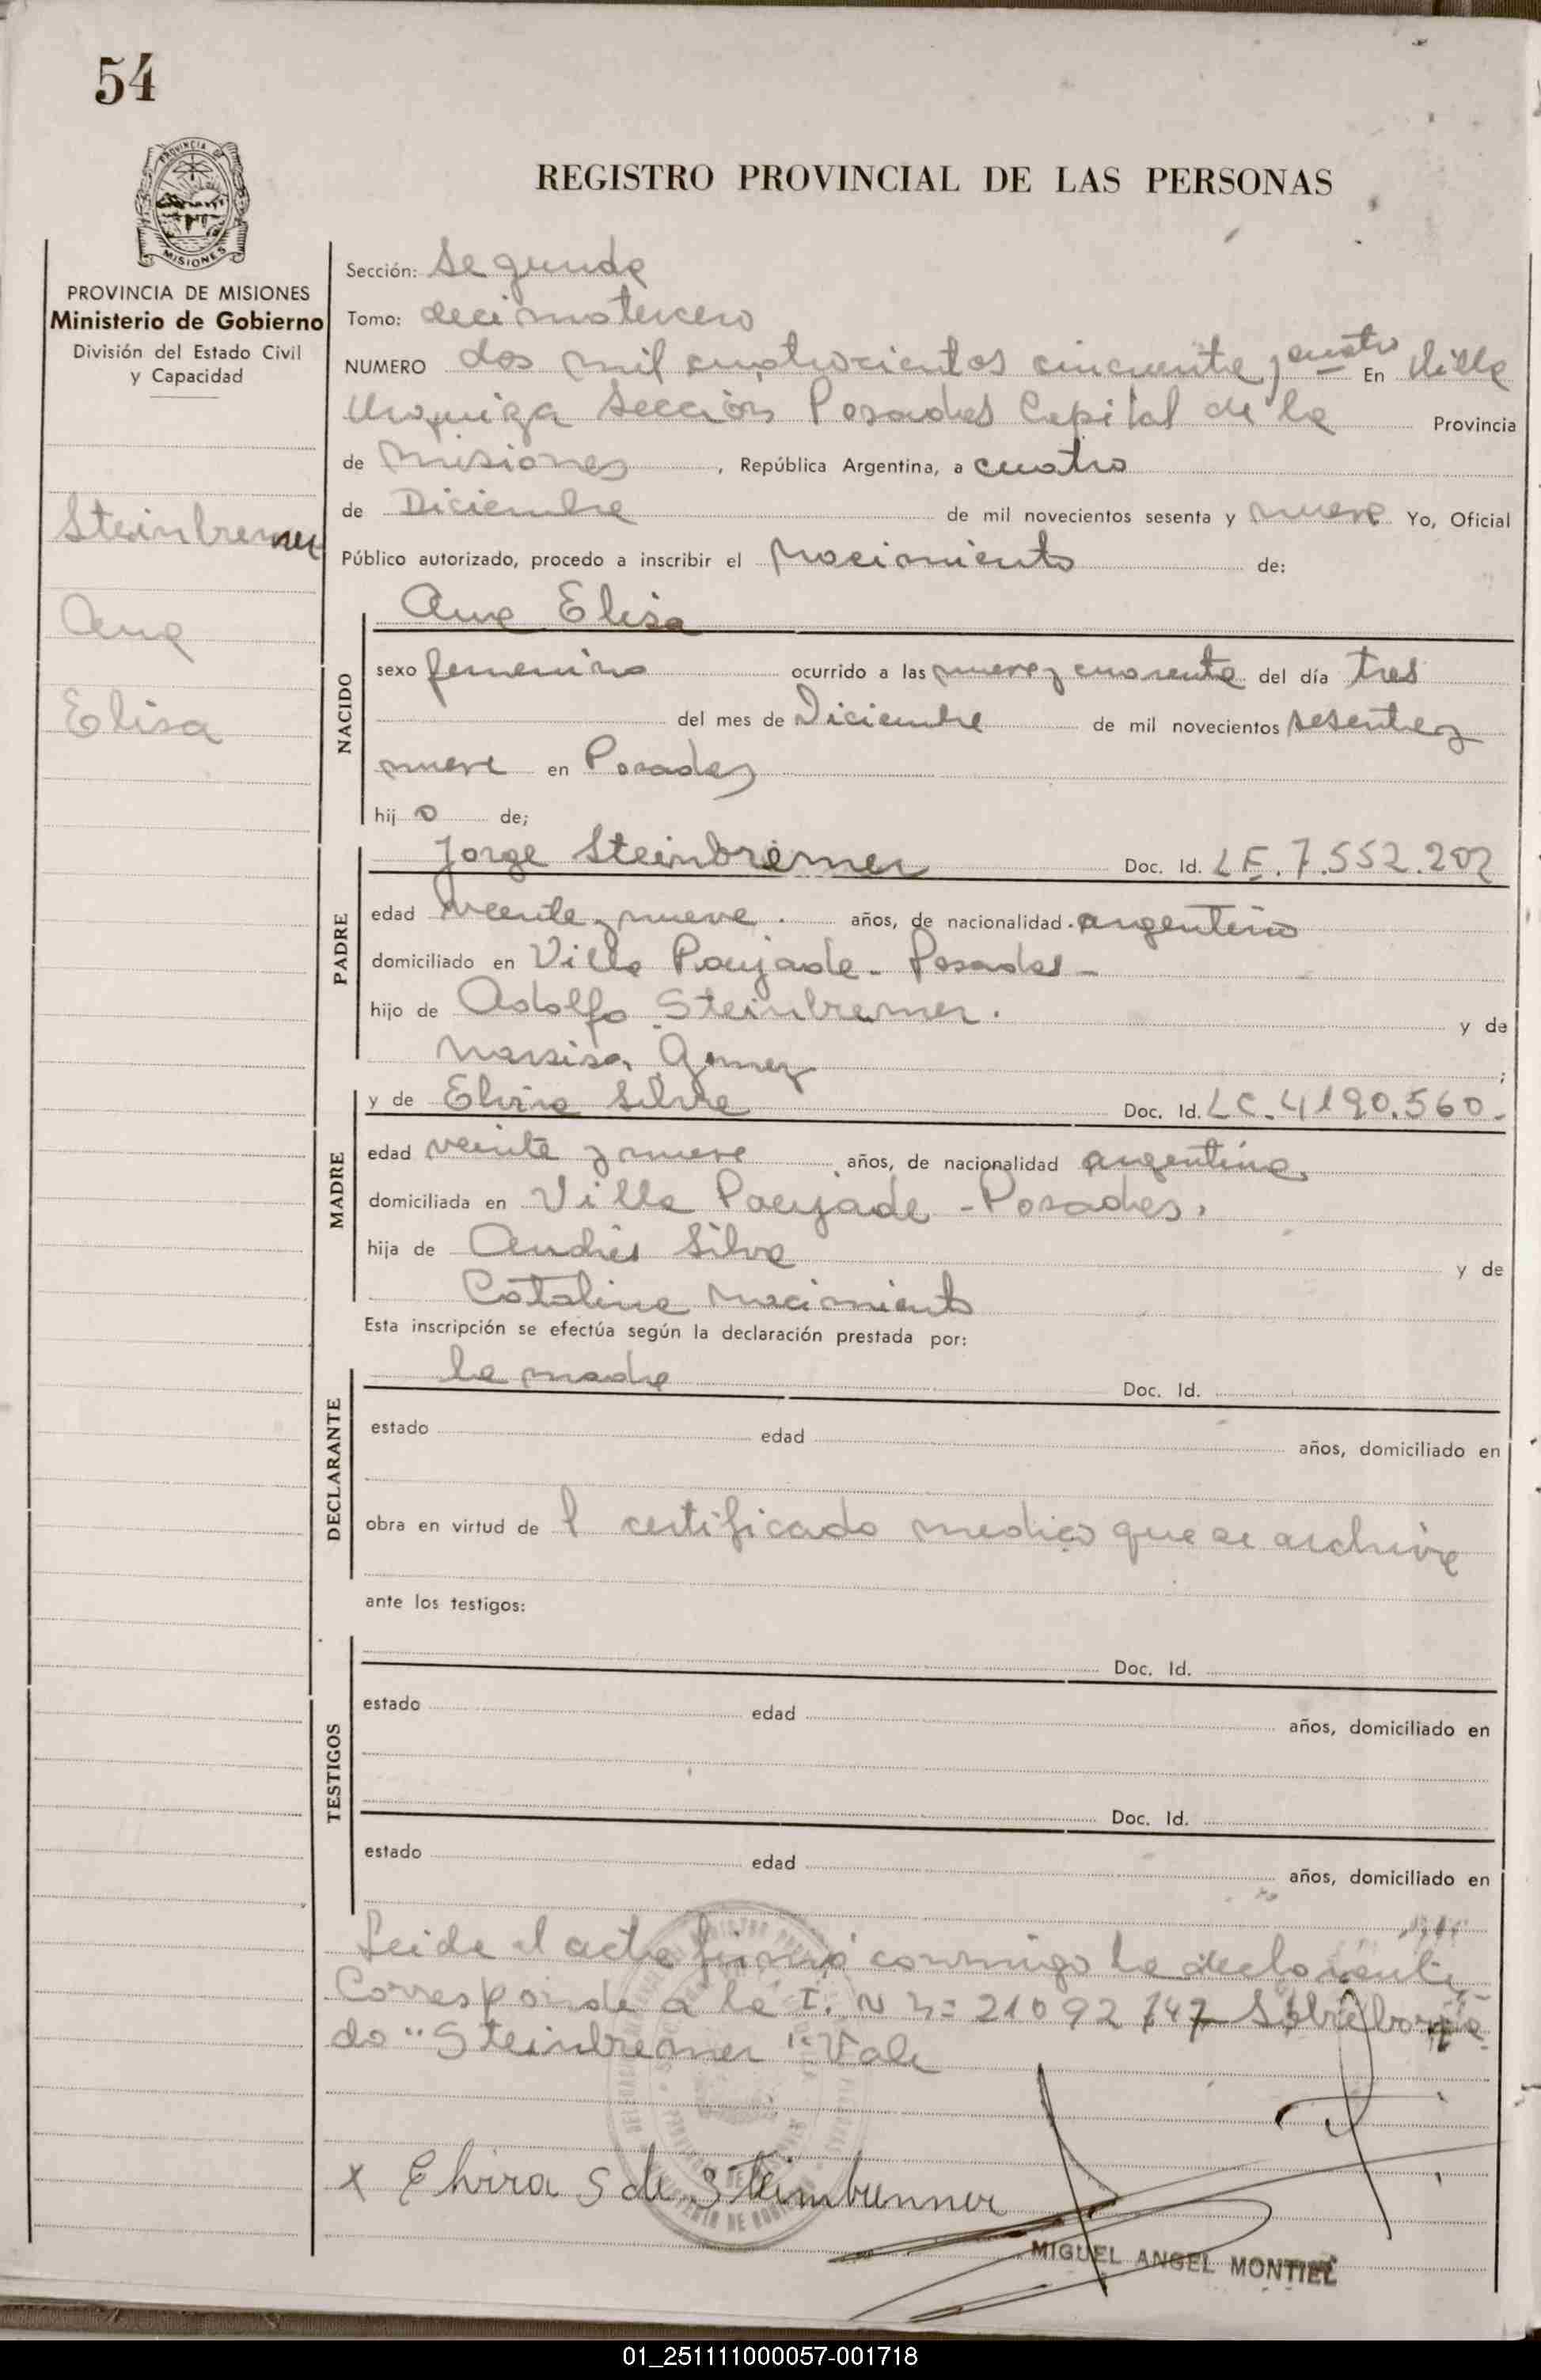 54
PROVINCIA DE MISIONES
Ministerio de Gobierno
División del Estado Civil
y Capacidad
Steinbrenner
Ana
Elisa
REGISTRO PROVINCIAL DE LAS PERSONAS
Sección: Segunda
Tomo: decimotercero
NUMERO dos mil cuatrocientos cincuenta y cuatro En Villa
Urquiza Sección Posadas Capital de la Provincia
de Misiones, República Argentina, a cuatro
de Diciembre de mil novecientos sesenta y nueve Yo, Oficial
Público autorizado, procedo a inscribir el Nacimiento de:
Ana Elisa
NACIDO
sexo femenino ocurrido a las nueve y cuarenta del día tres
del mes de Diciembre de mil novecientos sesenta y
nueve en Posadas
hij o de;
PADRE
Jorge Steinbremer Doc. Id. L.E. 7.552.202
edad veente y nueve. años, de nacionalidad argentino
domiciliado en Villa Poujade - Posadas -
hijo de Adolfo Steinbremer. y de
Narsisa Gomez ;
MADRE
y de Elvira Silva Doc. Id. LC. 4190.560.
edad veinte y nueve años, de nacionalidad argentina.
domiciliada en Villa Poujade - Posadas.
hija de Andrés Silva y de
Catalina Nacimiento
Esta inscripción se efectúa según la declaración prestada por:
DECLARANTE
la madre Doc. Id.
estado edad años, domiciliado en
obra en virtud de l certificado medico que se archiva
ante los testigos:
TESTIGOS
Doc. Id.
estado edad años, domiciliado en
Doc. Id.
estado edad años, domiciliado en
Leida el acta firmó conmigo la declarante
Corresponde a la I. N n= 21092747 Sobreborra
do "Steinbremer" Vale
x Elvira S de Steimbrenner
MIGUEL ANGEL MONTIEL
01_251111000057-001718